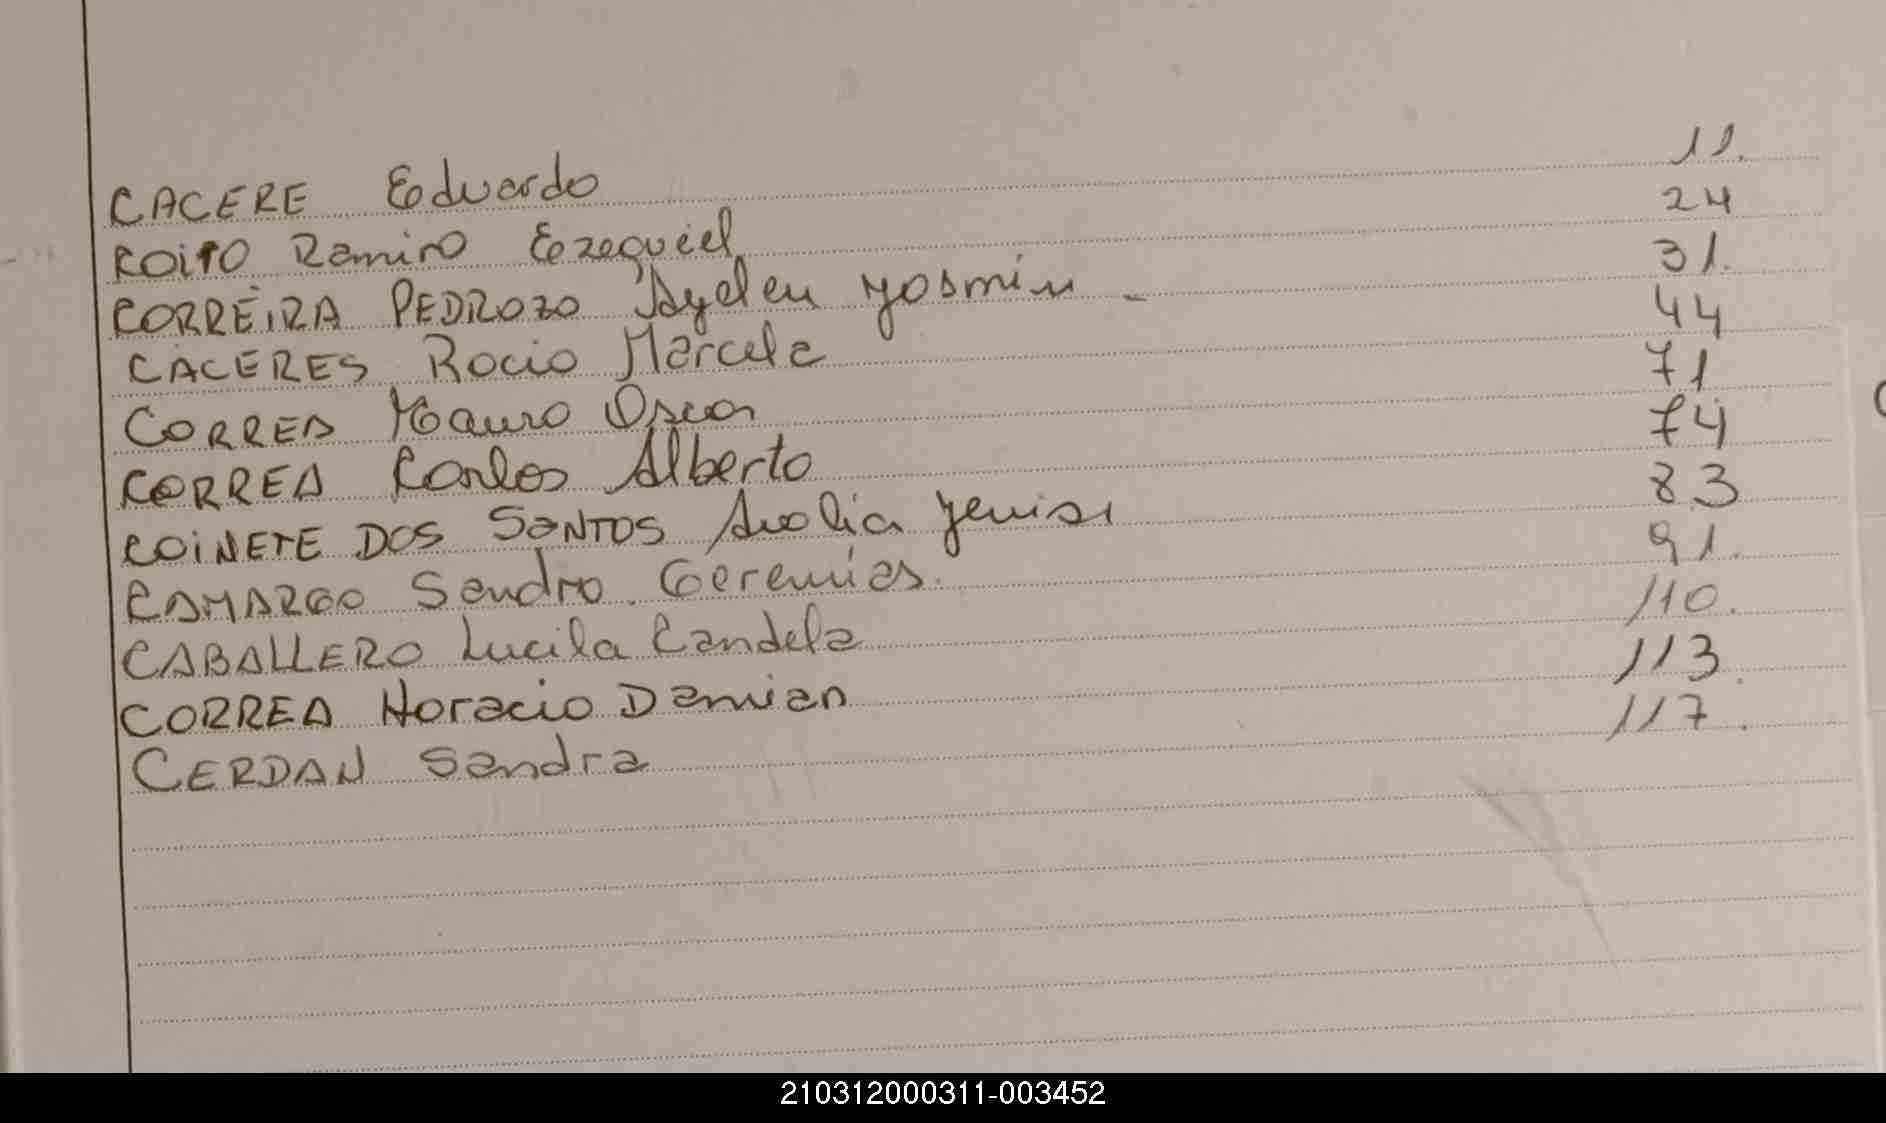 CACERE Eduardo 11.
COITO Ramiro Ezequiel 24
CORREIRA PEDROZO Ayelen Yosmin - 31.
CACERES Rocio Marcela 44
CORREA Mauro Oscar 71
CORREA Carlos Alberto 74
COINETE DOS SANTOS Analia 83
CAMARGO Sandro Geremias. 91.
CABALLERO Lucila Candela 110.
CORREA Horacio Damian 113.
CERDAN Sandra 117.
210312000311-003452